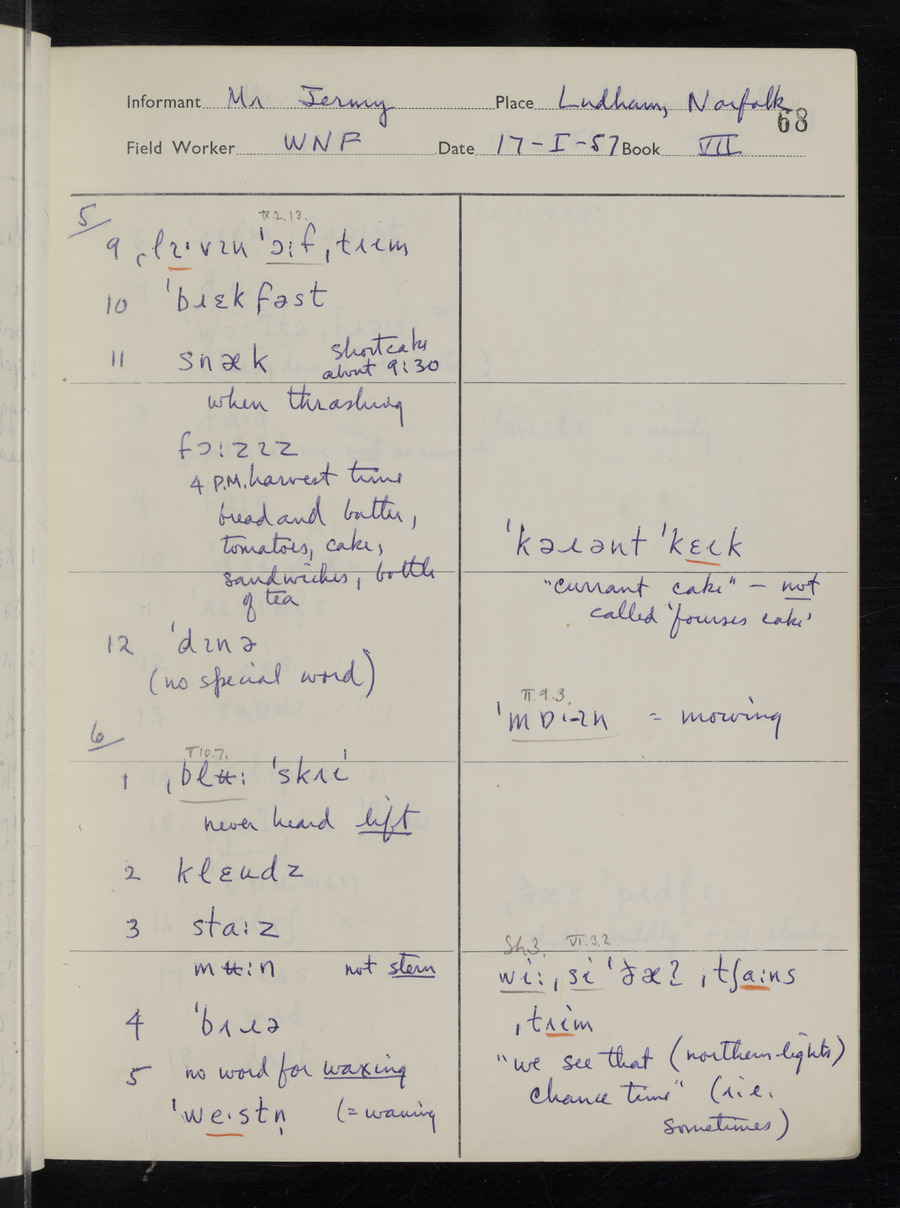 Informant Mr Jermy Place Ludham, Norfolk
68
Field Worker WNF Date 17-I-57 Book VII
5
IX.2.13.
9 ˌlɪˑvɪn ˈɔːf ˌtɹɛm
10 ˈbɹɛkfəst
11 snæk shortcake
about 9:30
when thrashing
fɔːzɪz
4 P.M. harvest time
bread and butter,
tomatoes, cake,
sandwiches, bottle
of tea
12 ˈdɪnə
(no special word)
6
V.10.7.
1 ˌblʉː ˈskɹi
never heard lift
2 klɛudz
3 staːz
mʉːn not stern
4 ˈbɹɪə
5 no word for waxing
ˈweˑstn̩ (= waning
ˈkəɹənt ˈkɛɪk
"currant cake" – not
called 'fourses cake'
II.9.3.
ˈmɒˑɪn = mowing
Sh.3. VI.3.2.
wiː ˌsi ˈðæʔ ˌtʃaːns
ˌtɹim
"we see that (northern-lights)
chance time" (i.e.
sometimes)